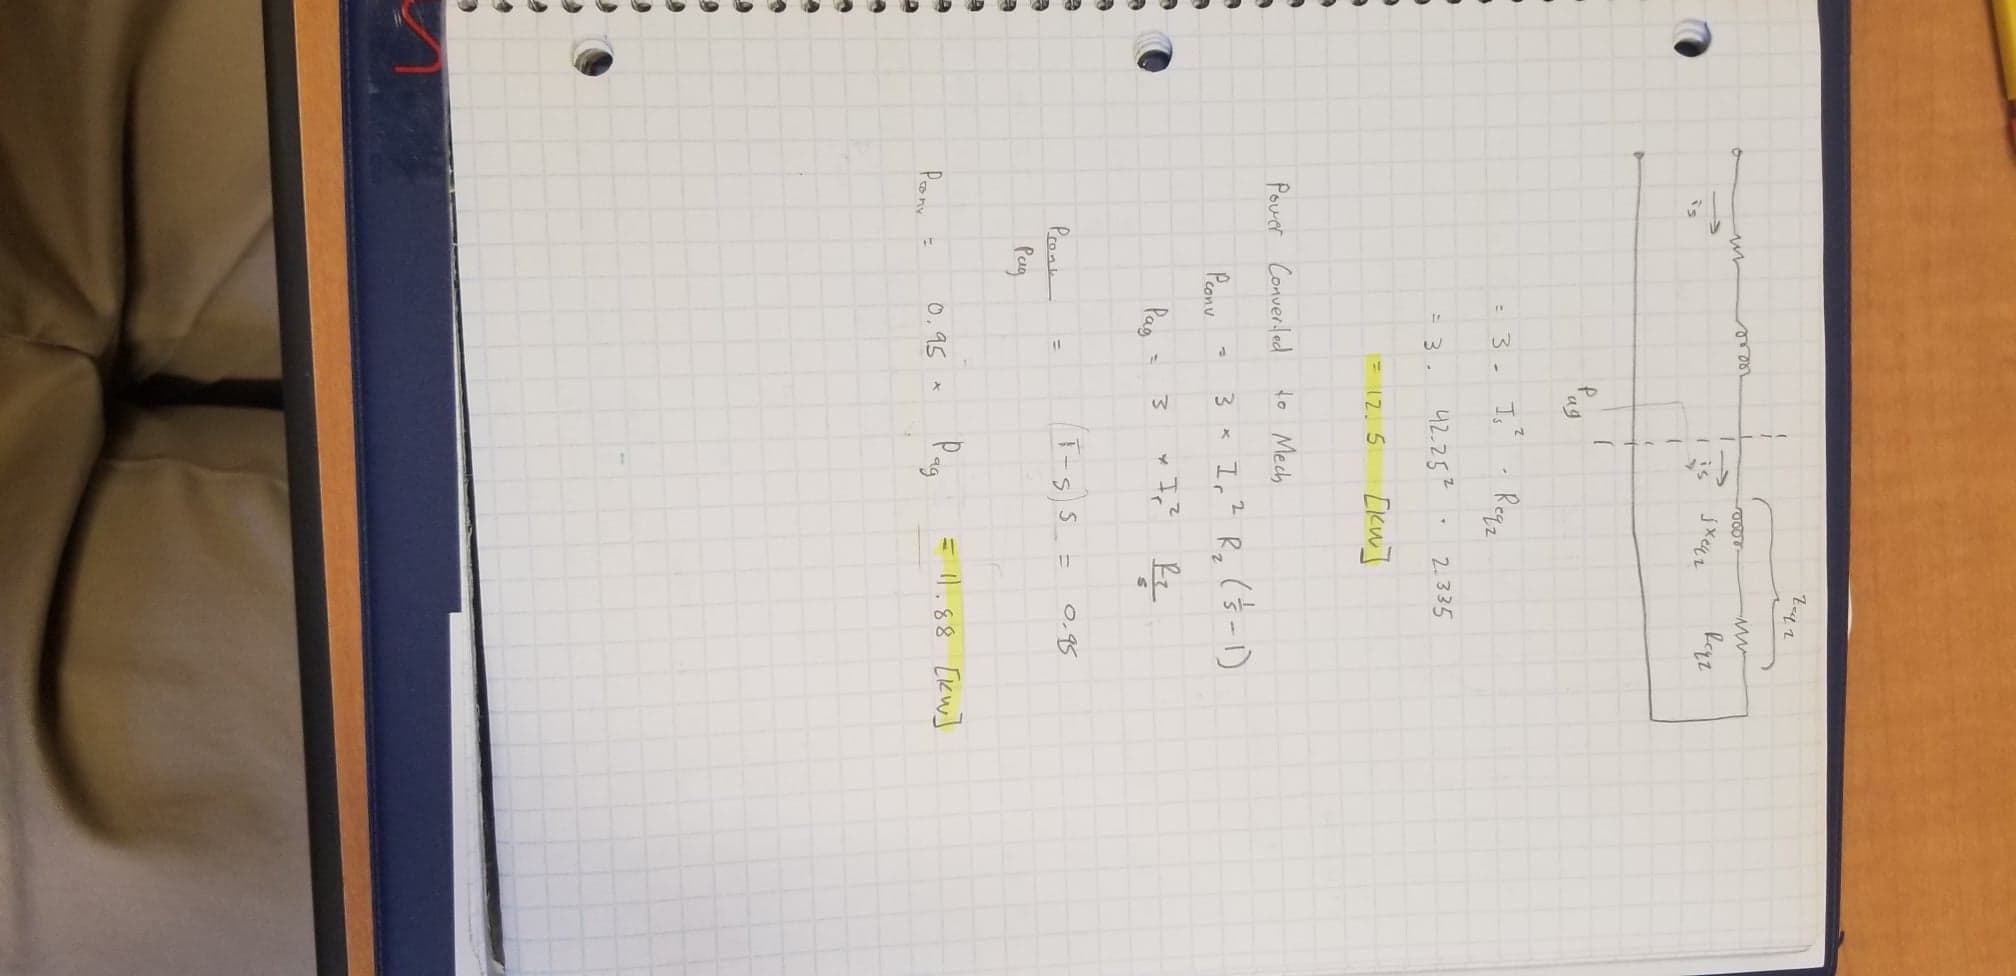 Zeq2
is
is
jXeq2
Req2
Pag
= 3 · Is² · Req2
= 3 · 42.25² · 2.335
= 12.5 [KW]
Power Converted to Mech
Pconv = 3 × Ir² R2 (1/s - 1)
Pag = 3 × Ir² R2/s
Pconv/Pag = (1-s) s = 0.95
Pconv = 0.95 × Pag = 11.88 [KW]